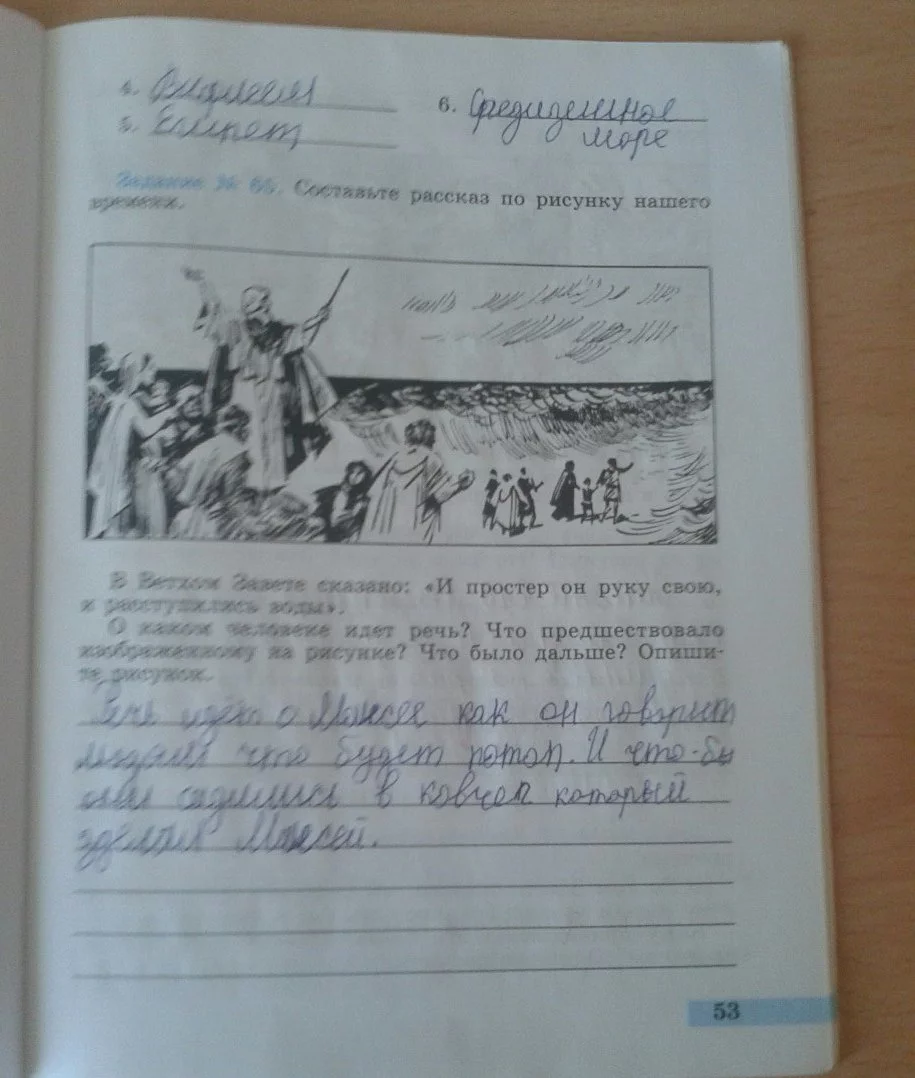 4. Вифлеем
5. Египет
6. Средиземное
море
Задание № 66. Составьте рассказ по рисунку нашего
времени.
В Ветхом Завете сказано: «И простер он руку свою,
и расступились воды».
О каком человеке идет речь? Что предшествовало
изображенному на рисунке? Что было дальше? Опиши-
те рисунок.
Речь идёт о Моисее как он говорит
людям что будет потоп. И что-бы
они садились в ковчег который
зделал Моисей.
53